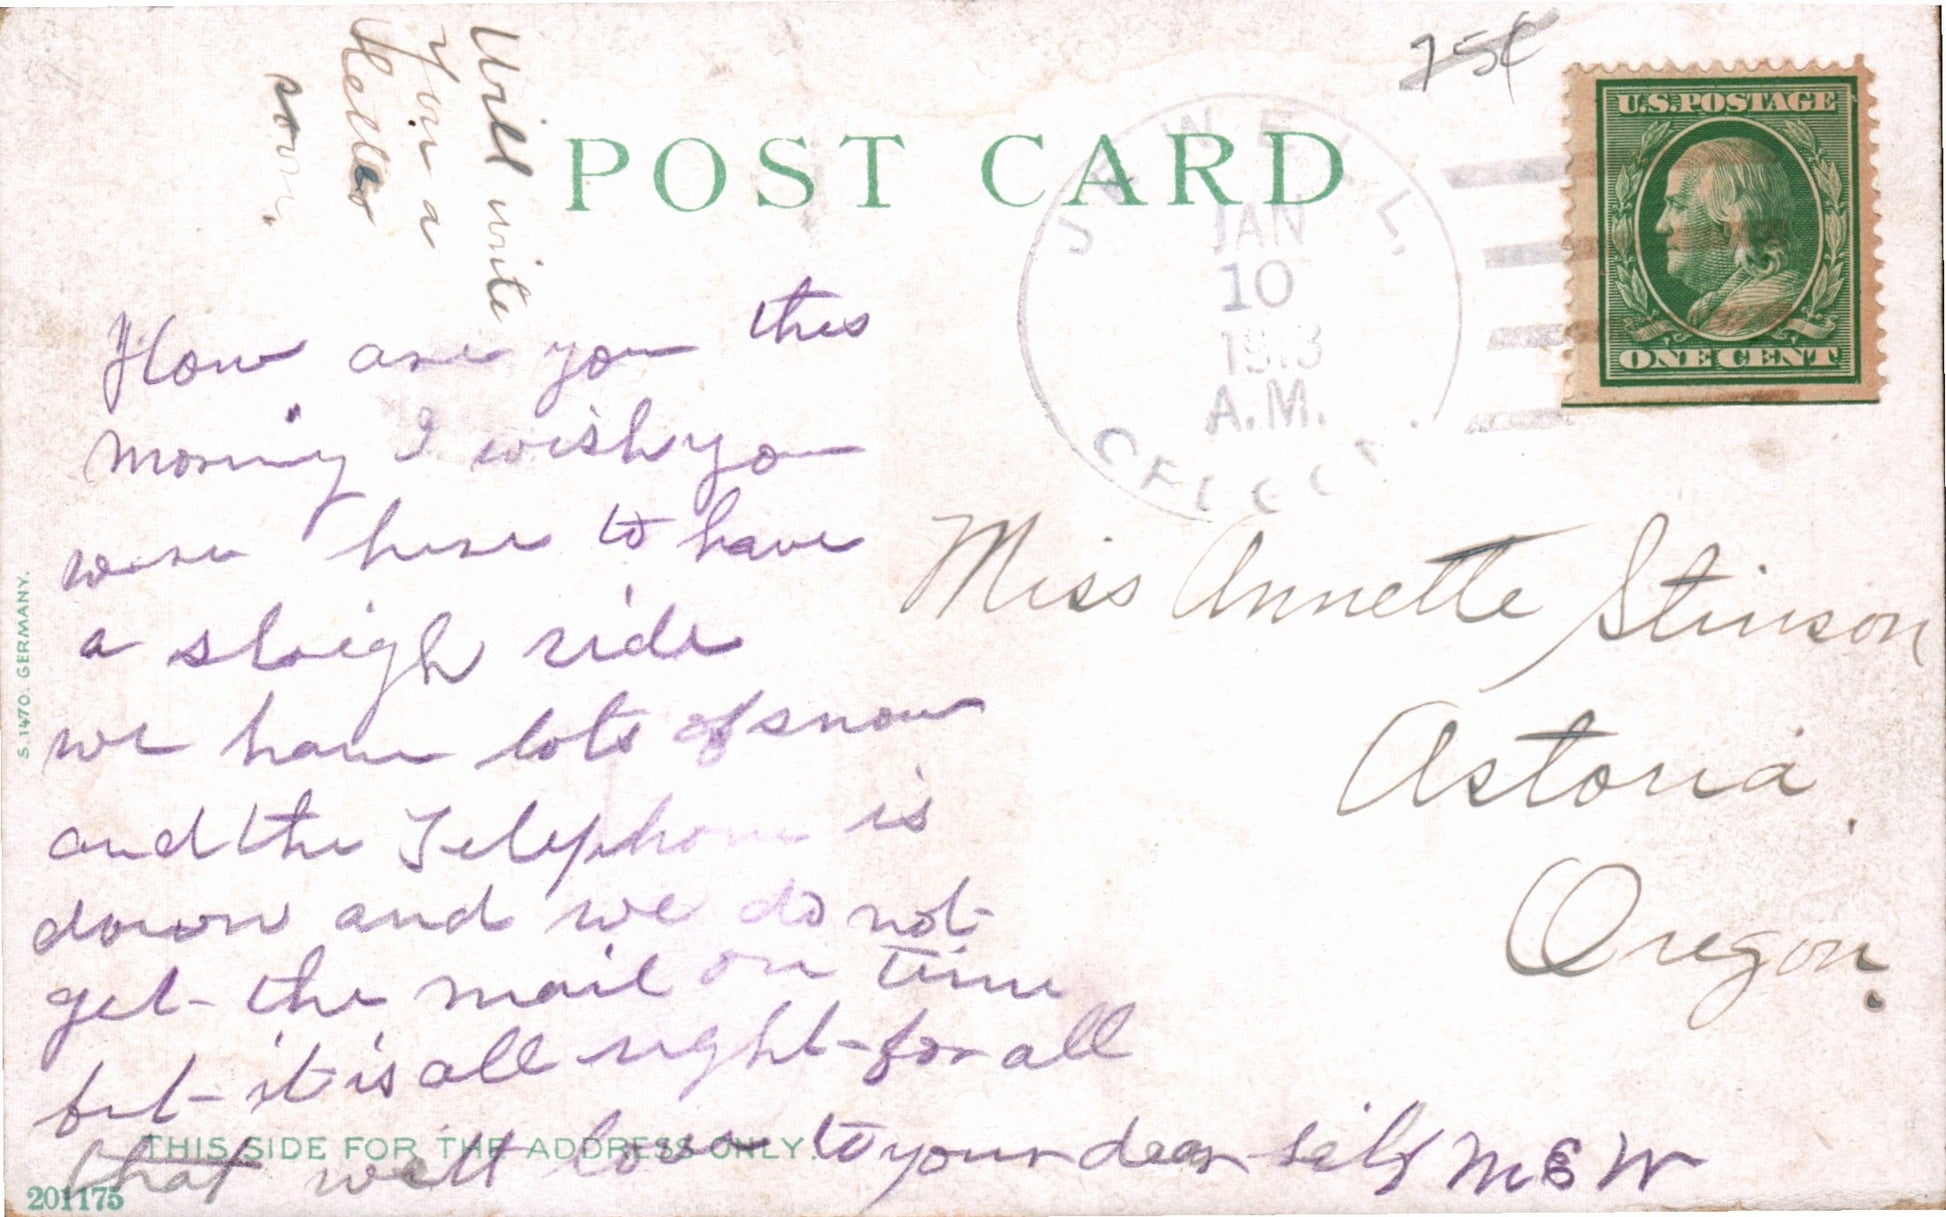 Will write
You a
letter
soon.
75¢
POST CARD
JEWELL
JAN
10
1913
A.M.
OREGON
U.S. POSTAGE
ONE CENT
How are you this
morning I wish you
were here to have
a sleigh ride
we have lots of snow
and the Telephone is
down and we do not
get the mail on time
but it is all right for all
that with love to your dear self M E W
Miss Annette Stinson
Astoria
Oregon.
S. 1470. GERMANY.
THIS SIDE FOR THE ADDRESS ONLY.
201175